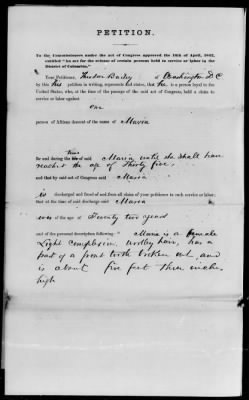 PETITION.
To the Commissioners under the act of Congress approved the 16th of April, 1862,
entitled "An act for the release of certain persons held to service or labor in the
District of Columbia."
Your Petitioner, Theodore Bailey of Washington D C
by this his petition in writing, represents and states, that he is a person loyal to the
United States, who, at the time of the passage of the said act of Congress, held a claim to
service or labor against
one
person of African descent of the name of Maria
for and during the time of said Maria until she shall have
reached the age of Thirty five,
and that by said act of Congress said Maria
is discharged and freed of and from all claim of your petitioner to such service or labor;
that at the time of said discharge said Maria
was of the age of Twenty two years
and of the personal description following: Maria is a female
Light complexion, woolly hair, has a
part of a front tooth broken out, and
is about five feet three inches
high